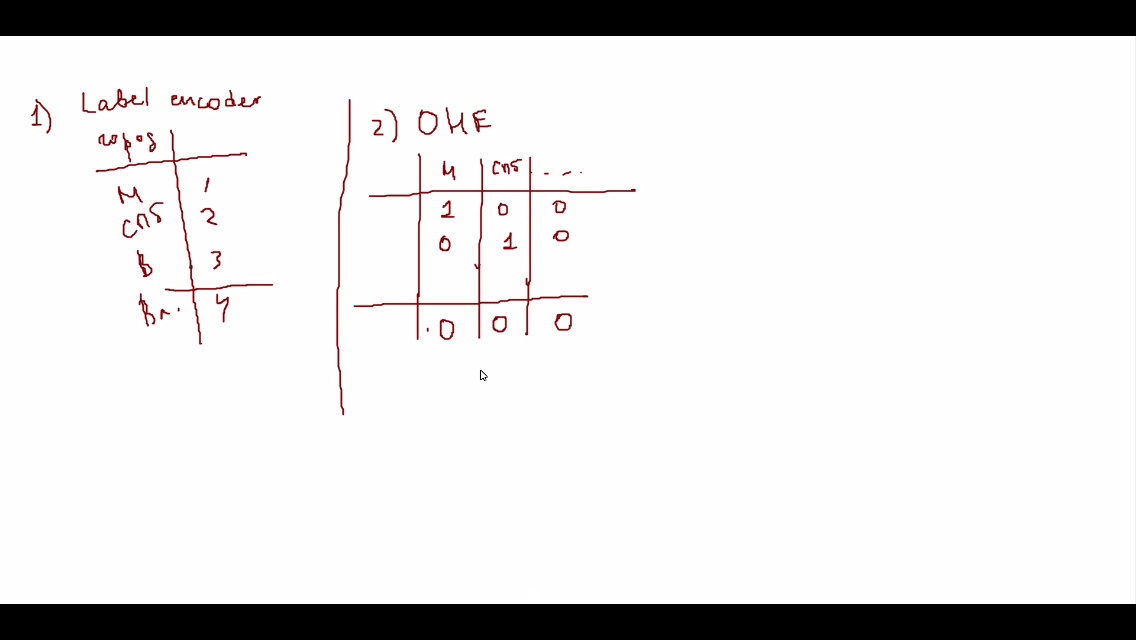 1) Label encoder
город
М 1
СПб 2
В 3
Вл. 4
2) OHE
М СПб ....
1 0 0
0 1 0
0 0 0